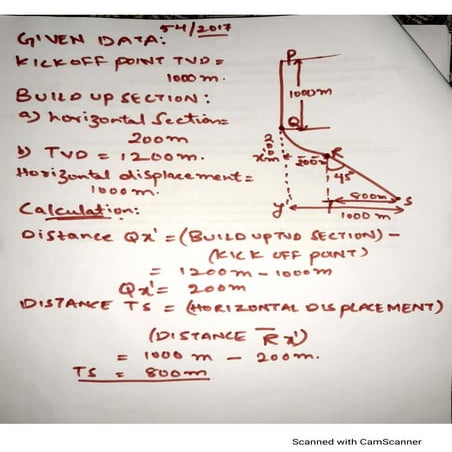 54/2017
GIVEN DATA:
KICKOFF POINT TVD =
1000m.
BUILD UP SECTION:
a) horizontal Section=
200m
b) TVD = 1200m.
Horizontal displacement=
1000m.
Calculation:
Distance Qx' = (BUILD UP TVD SECTION) -
(KICK OFF POINT)
= 1200m - 1000m
Qx' = 200m
DISTANCE TS = (HORIZONTAL DISPLACEMENT)
(DISTANCE Rx')
= 1000 m - 200m.
TS = 800m
P
1000m
Q
200
x'm
200
R
45
800m
y'
T
S
1000m
Scanned with CamScanner